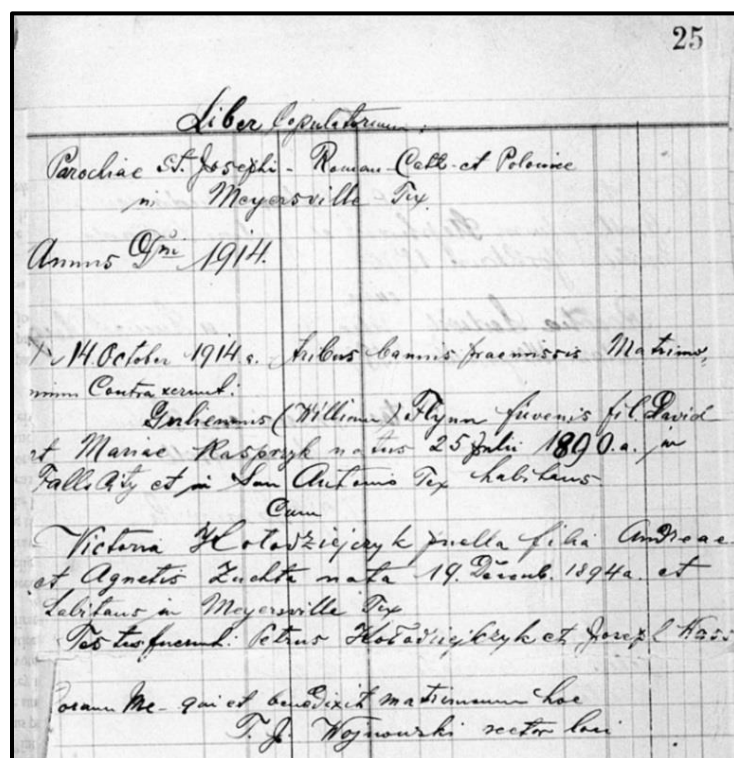 25
Liber Copulatorum.
Parochiae St. Josephi - Roman-Cath-et Polonice
in Meyersville Tex
Annus Dni 1914.
14. October 1914 a. tribus bannis praemissis Matrimo,
nium Contraxerunt:
Gulielmus (William) Flynn juvenis fil. David
et Mariae Kasprzyk natus 25 Julii 1890. a. in
Falls City et in San Antonio Tex habitans
Cum
Victoria Hołodziejczyk puella filia Andreae
et Agnetis Zuchta nata 19. Decemb. 1894 a. et
habitans in Meyersville Tex
Testes fuerunt: Petrus Hołodziejczyk et Joseph Wass
Coram Me - qui et benedixit matrimonium hoc
T. J. Wojnowski rector loci